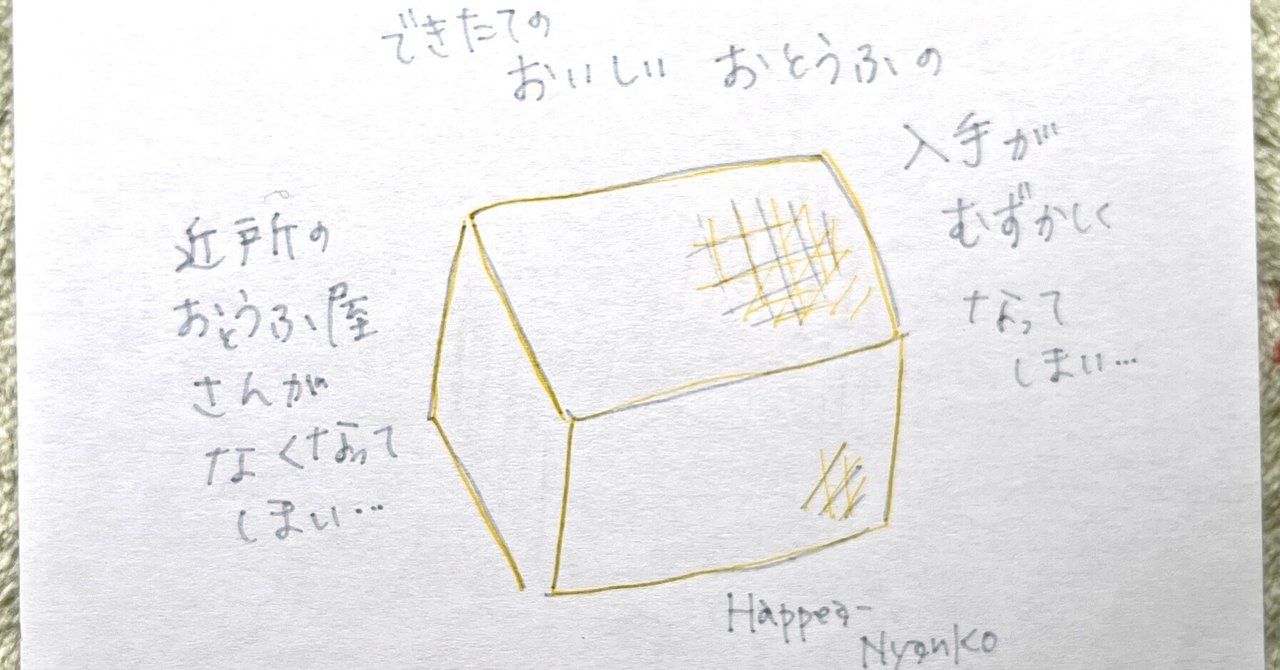 近所の
おとうふ屋
さんが
なくなって
しまい…
できたての
おいしい おとうふの
入手が
むずかしく
なって
しまい…
Happea-
Nyanko